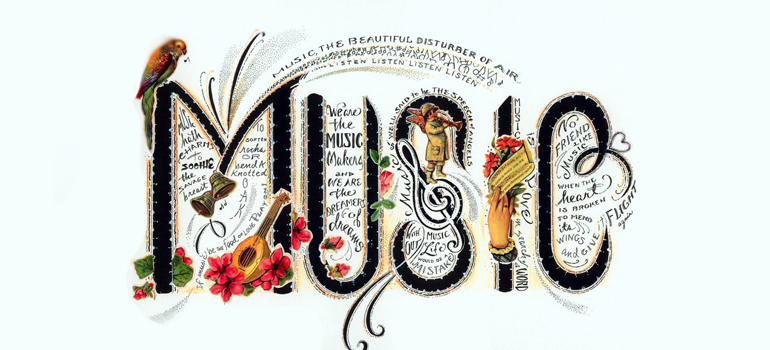 MUSIC, THE BEAUTIFUL DISTURBER OF AIR
LISTEN LISTEN LISTEN LISTEN
MUSIC
Music
hath
CHARMS
TO
SOOTHE
THE
SAVAGE
breast
TO
SOFTEN
rocks
OR
bend A
KNOTTED
OAK
If music be the food of LOVE PLAY on
We are
the
MUSIC
Makers
AND
WE ARE
THE
DREAMERS
of
dreams
Music is WELL SAID to be THE SPEECH of ANGELS
WITH
OUT MUSIC
Life
WOULD BE A
MISTAKE
WORD
NO
FRIEND
LIKE
Music
WHEN THE
heart
IS BROKEN
TO MEND
its
WINGS
AND GIVE
FLIGHT
again